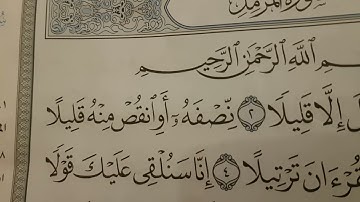 سورة المزمل
ـمِ اللَّهِ الرَّحْمَٰنِ الرَّحِيمِ
إِلَّا قَلِيلًا ٢ نِّصْفَهُۥٓ أَوِ ٱنقُصْ مِنْهُ قَلِيلًا
ـقُرْءَانَ تَرْتِيلًا ٤ إِنَّا سَنُلْقِى عَلَيْكَ قَوْلًا